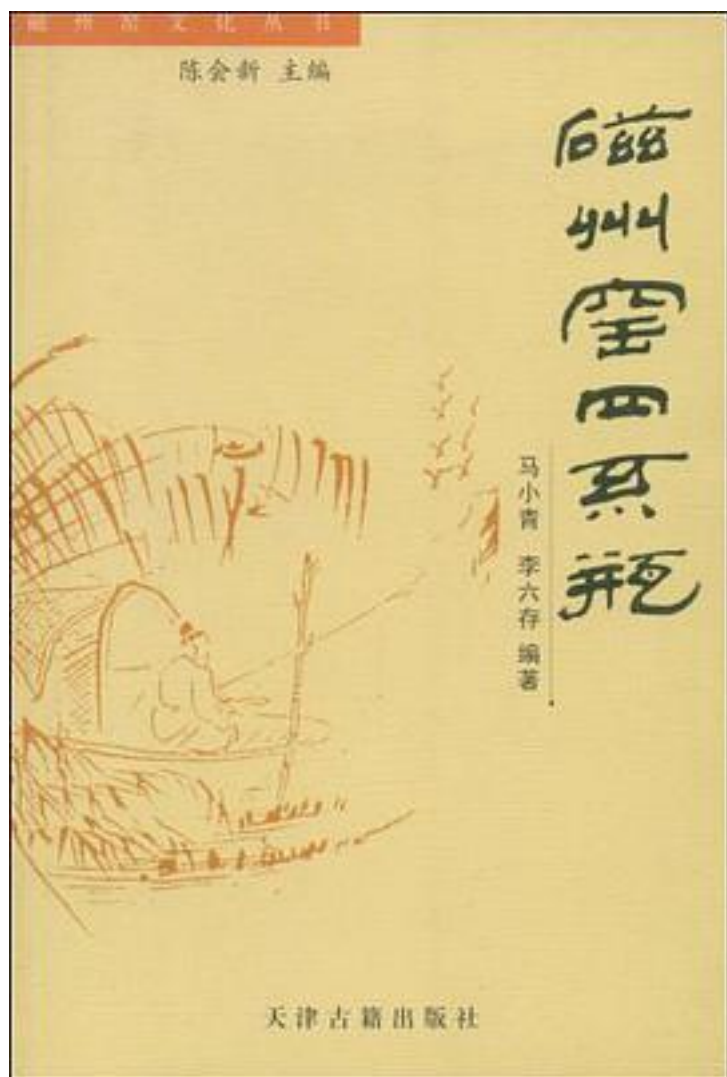 磁州窑文化丛书
陈会新 主编
磁州窑四系瓶
马小青 李六存 编著
天津古籍出版社